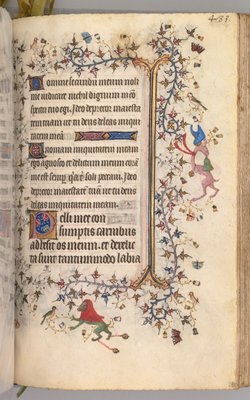 433
Domine secundum meum noli
me iudicare nichil dignum in co
spectu tuo egi. Ideo deprecor maiesta
tem tuam ut tu deus deleas iniqui
tatem meam
Quoniam iniquitatem meam
ego agnosco et delictum meum cora
me est semper qr tibi soli peccavi. Ideo
deprecor maiestatē tuā ut tu deus
deleas iniquitatem meam.
Pelli mee con
sumptis carnibus
adhesit os meum. et derelic
ta sunt tantummodo labia